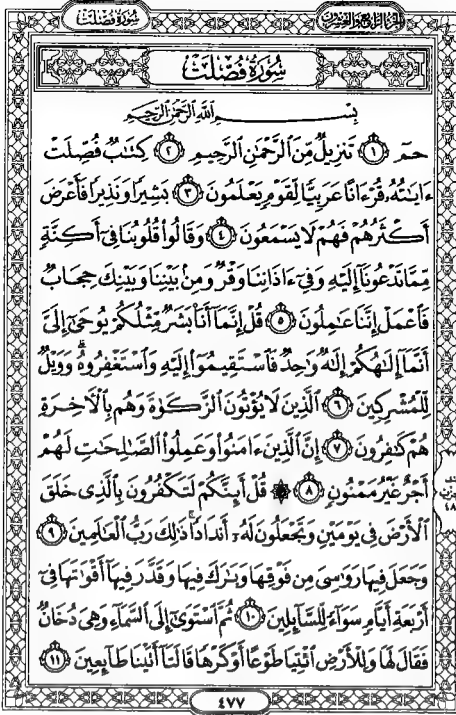 الجزء الرابع والعشرون سورة فصلت
سُورَةُ فُصِّلَتْ
بِسْمِ اللَّهِ الرَّحْمَٰنِ الرَّحِيمِ
حمٓ ١ تَنزِيلٌ مِّنَ ٱلرَّحْمَٰنِ ٱلرَّحِيمِ ٢ كِتَٰبٌ فُصِّلَتْ
ءَايَٰتُهُۥ قُرْءَانًا عَرَبِيًّا لِّقَوْمٍ يَعْلَمُونَ ٣ بَشِيرًا وَنَذِيرًا فَأَعْرَضَ
أَكْثَرُهُمْ فَهُمْ لَا يَسْمَعُونَ ٤ وَقَالُوا۟ قُلُوبُنَا فِىٓ أَكِنَّةٍ
مِّمَّا تَدْعُونَآ إِلَيْهِ وَفِىٓ ءَاذَانِنَا وَقْرٌ وَمِنۢ بَيْنِنَا وَبَيْنِكَ حِجَابٌ
فَٱعْمَلْ إِنَّنَا عَٰمِلُونَ ٥ قُلْ إِنَّمَآ أَنَا۠ بَشَرٌ مِّثْلُكُمْ يُوحَىٰٓ إِلَىَّ
أَنَّمَآ إِلَٰهُكُمْ إِلَٰهٌ وَٰحِدٌ فَٱسْتَقِيمُوٓا۟ إِلَيْهِ وَٱسْتَغْفِرُوهُ ۗ وَوَيْلٌ
لِّلْمُشْرِكِينَ ٦ ٱلَّذِينَ لَا يُؤْتُونَ ٱلزَّكَوٰةَ وَهُم بِٱلْءَاخِرَةِ
هُمْ كَٰفِرُونَ ٧ إِنَّ ٱلَّذِينَ ءَامَنُوا۟ وَعَمِلُوا۟ ٱلصَّٰلِحَٰتِ لَهُمْ
أَجْرٌ غَيْرُ مَمْنُونٍ ٨ ۞ قُلْ أَئِنَّكُمْ لَتَكْفُرُونَ بِٱلَّذِى خَلَقَ
ٱلْأَرْضَ فِى يَوْمَيْنِ وَتَجْعَلُونَ لَهُۥٓ أَندَادًا ۚ ذَٰلِكَ رَبُّ ٱلْعَٰلَمِينَ ٩
وَجَعَلَ فِيهَا رَوَٰسِىَ مِن فَوْقِهَا وَبَٰرَكَ فِيهَا وَقَدَّرَ فِيهَآ أَقْوَٰتَهَا فِىٓ
أَرْبَعَةِ أَيَّامٍ سَوَآءً لِّلسَّآئِلِينَ ١٠ ثُمَّ ٱسْتَوَىٰٓ إِلَى ٱلسَّمَآءِ وَهِىَ دُخَانٌ
فَقَالَ لَهَا وَلِلْأَرْضِ ٱئْتِيَا طَوْعًا أَوْ كَرْهًا قَالَتَآ أَتَيْنَا طَآئِعِينَ ١١
٤٧٧